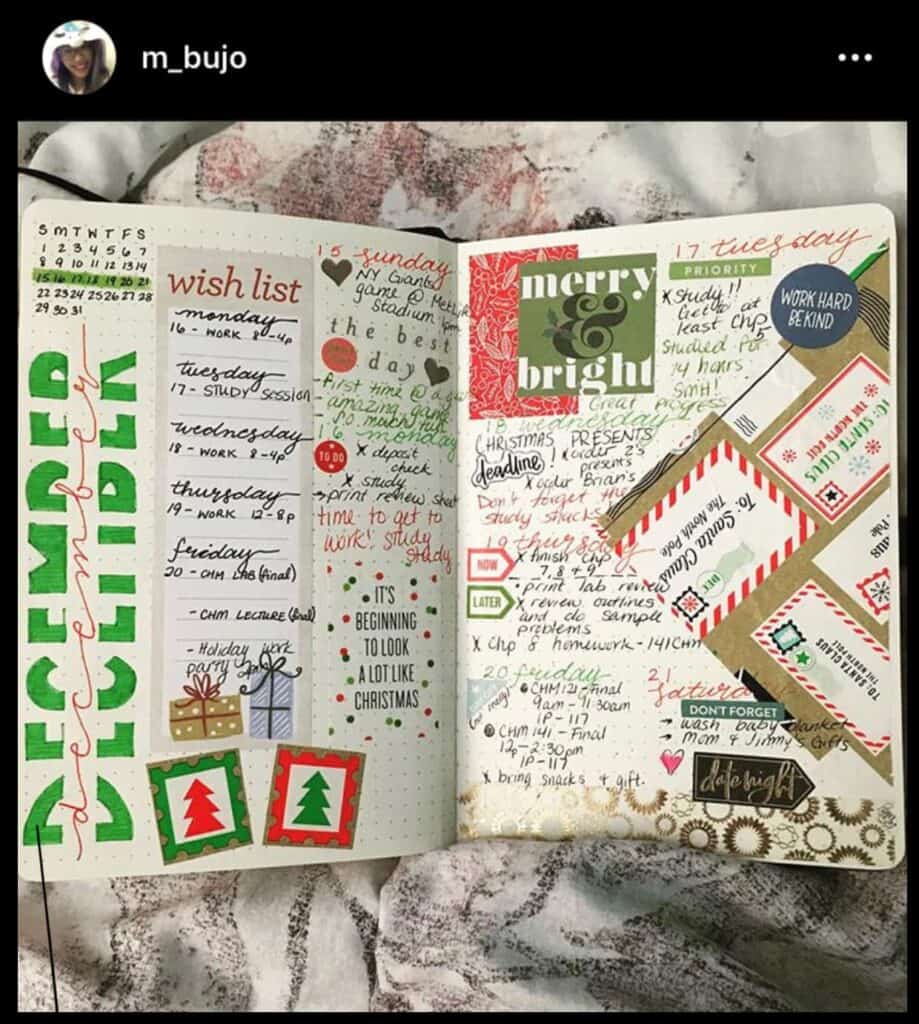 m_bujo
S M T W T F S
1 2 3 4 5 6 7
8 9 10 11 12 13 14
15 16 17 18 19 20 21
22 23 24 25 26 27 28
29 30 31
DECEMBER
december
wish list
monday
16 - WORK 8-4p
tuesday
17 - STUDY SESSION
wednesday
18 - WORK 8-4p
thursday
19 - WORK 12-8p
friday
20 - CHM LAB (final)
- CHM LECTURE (final)
- Holiday work
party
15 sunday
NY Giants
game @
Stadium
the best
day
- first time @ a
- amazing game
16 monday
TO DO
x deposit
check
x study
print review
time to get to
work! study
study
IT'S
BEGINNING
TO LOOK
A LOT LIKE
CHRISTMAS
merry
&
bright
17 tuesday
PRIORITY
x Study!!
Get to at
least Chp
5
Studied for
14 hours
SMH!
Great progress
WORK HARD.
BE KIND
18 wednesday
CHRISTMAS PRESENTS
deadline! x order 2's
presents
x order Brian's
Don't forget the
study snacks
19 thursday
NOW
x finish chp
7, 8 & 9
• print lab review
LATER
x review outlines
and do sample
problems
x Chp 8 homework - 141 CHM
20 friday
CHM 121 - Final
9am - 11:30am
1P - 117
CHM 141 - Final
12p - 2:30pm
1P - 117
x bring snacks & gift.
21
saturday
DON'T FORGET
→ wash baby blanket
→ Mom & Jimmy's Gifts
date night
TO: SANTA CLAUS
THE NORTH POLE
To: Santa Claus
The North Pole
DEC
TO: SANTA CLAUS
THE NORTH POLE